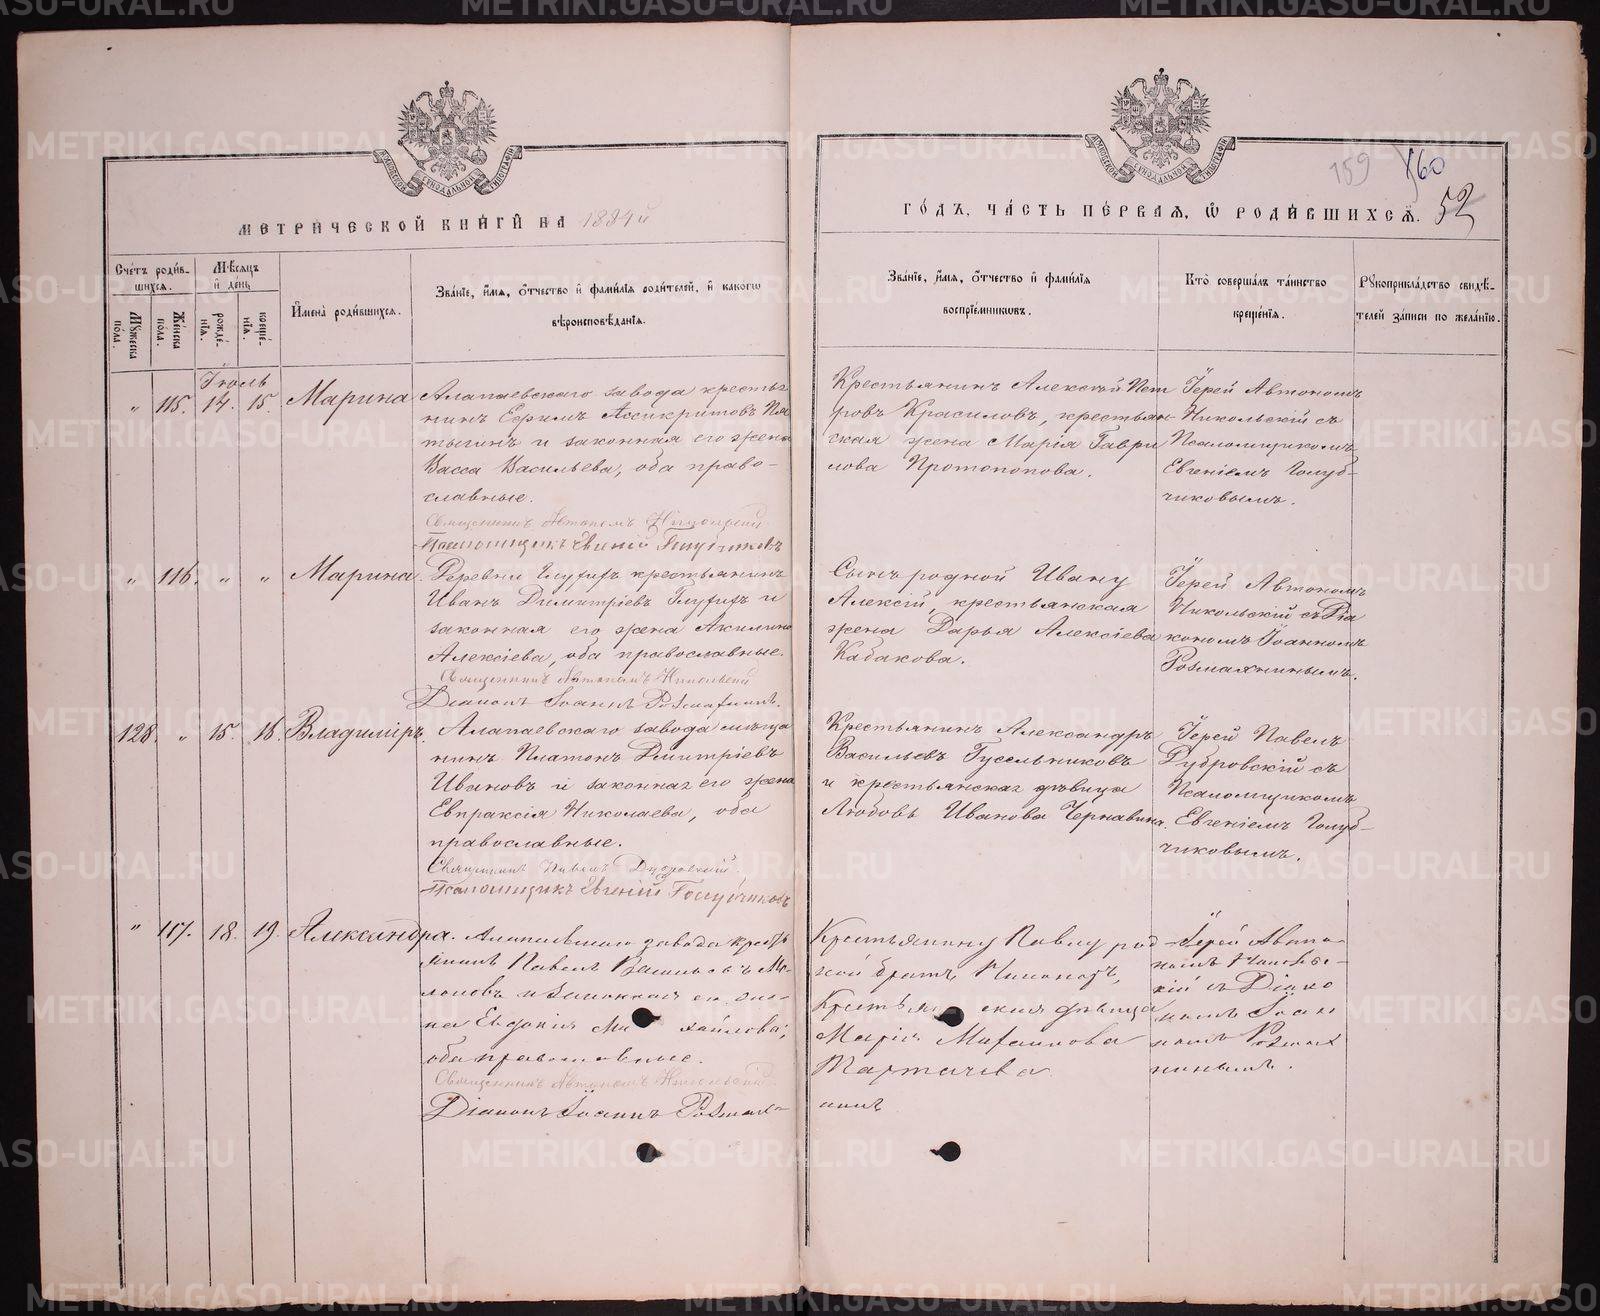 159 160
52
МЕТРИЧЕСКОЙ КНИГИ НА 1884й
ГОДЪ, ЧАСТЬ ПЕРВАЯ, Ѡ РОДИВШИХСЯ.
Счетъ родив-
шихся.
Мѣсяцъ
и день
Мужеска
пола.
Женска
пола.
рожде-
нія.
креще-
нія.
Имена родившихся.
Званіе, имя, отчество и фамилія родителей, и какогѡ
вѣроисповѣданія.
Званіе, имя, отчество и фамилія
воспріемниковъ.
Кто совершалъ таинство
крещенія.
Рукоприкладство свидѣ-
телей записи по желанію.
Іюль
„ 115. 14. 15. Марина
Алапаевскаго завода кресть
нинъ Ефимъ Ассикритовъ Пя
тыгинъ и законная его жена
Васса Васильева, оба право-
славные.
Священникъ Автономъ Никольскій
Псаломщикъ Евгеній Голубчиковъ
Крестьянинъ Алексѣй Пет
ровъ Красиловъ, крестьян-
ская жена Марія Гаври
лова Протопопова.
Іерей Автономъ
Никольскій съ
Псаломщикомъ
Евгеніемъ Голуб-
чиковымъ.
„ 116. „ „ Марина.
Деревни Глухихъ крестьянинъ
Иванъ Димитріевъ Глухихъ и
законная его жена Акилина
Алексіева, оба православные.
Священникъ Автономъ Никольскій
Діаконъ Іоаннъ
Сынъ родной Ивану
Алексій, крестьянская
жена Дарья Алексіева
Кабакова.
Іерей Автономъ
Никольскій съ Діа
кономъ Іоанномъ
128. „ 15. 16. Владиміръ.
Алапаевскаго завода мѣща
нинъ Платонъ Дмитріевъ
Ивановъ и законная его жена
Евпраксія Николаева, оба
православные.
Священникъ Павелъ Дубровскій
Псаломщикъ Евгеній Голубчиковъ
Крестьянинъ Александръ
Васильевъ Гусельниковъ
и крестьянская дѣвица
Любовь Иванова Чернавина.
Іерей Павелъ
Дубровскій съ
Псаломщикомъ
Евгеніемъ Голуб-
чиковымъ.
„ 117. 18. 19. Александра.
Алапаевскаго завода кресть
янинъ Павелъ
и законная его же-
на Евдокія Михайлова,
оба православные.
Священникъ Автономъ Никольскій
Діаконъ Іоаннъ
Крестьянину Павлу род
ной братъ
Крестьянская дѣвица
Марія
Іерей Авто-
номъ Николь-
скій съ Діако
номъ Іоан
номъ